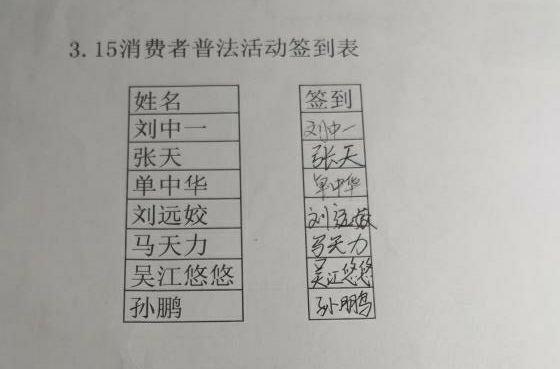 3.15消费者普法活动签到表
姓名 签到
刘中一 刘中一
张天 张天
单中华 单中华
刘远姣 刘远姣
马天力 马天力
吴江悠悠 吴江悠悠
孙鹏 孙鹏